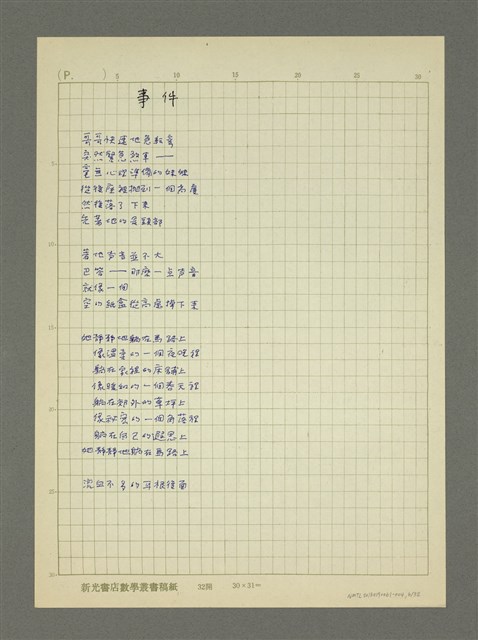 (P. )
5
10
15
20
25
30
事件
哥哥快速地急駛
突然緊急煞車——
毫無心理準備的她
從後座被拋到一個高度
然後落了下來
是著地的
著地声音並不大
巴答——那麼一点声音
就像一個
空的紙盒從高處掉下來
她靜靜地躺在馬路上
像溫柔的一個夜晚裡
躺在家裡的床舖上
像暖和的一個春天裡
躺在郊外的草坪上
像秘密的一個角落裡
躺在自己的遐思上
她靜靜地躺在馬路上
流血不多的耳根後面
新光書店數學叢書稿紙
32開
20×31